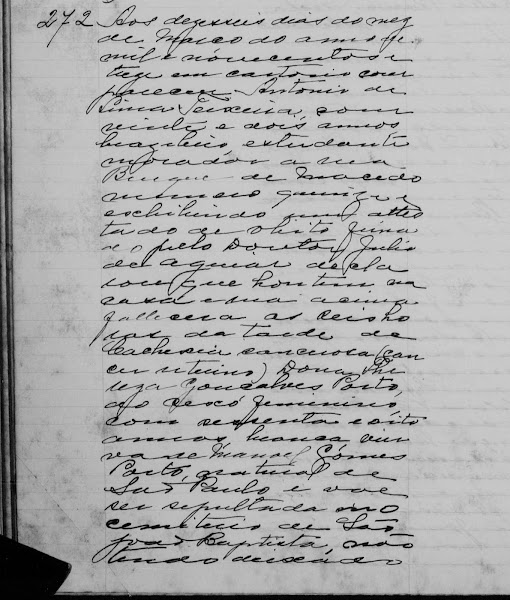 272 Aos dezesseis dias do mez
de Março do anno de
mil e novecentos e
treze em cartorio com
pareceu Antonio de
Lima Teixeira, com
vinte e dois annos
brazileiro, estudante
morador a rua
Buarque de Macedo
numero quinze e
exhibindo um attes
tado de obito firma
do pelo Doutor Julio
de Aguiar decla
rou que hontem na
casa e rua acima
fallecera as seis ho
ras da tarde de
Cachexia cancerosa (can
cer uterino) Dona The
reza Gonçalves Porto,
do sexo feminino,
com sessenta e oito
annos, branca, viu
va de Manoel Gomes
Porto, natural de
São Paulo e vae
ser sepultada no
cemiterio de São
João Baptista, não
tendo deixado